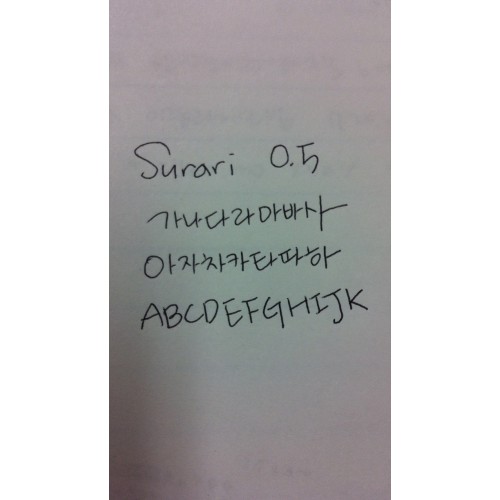 Surari 0.5
가나다라마바사
아자차카타파하
ABCDEFGHIJK